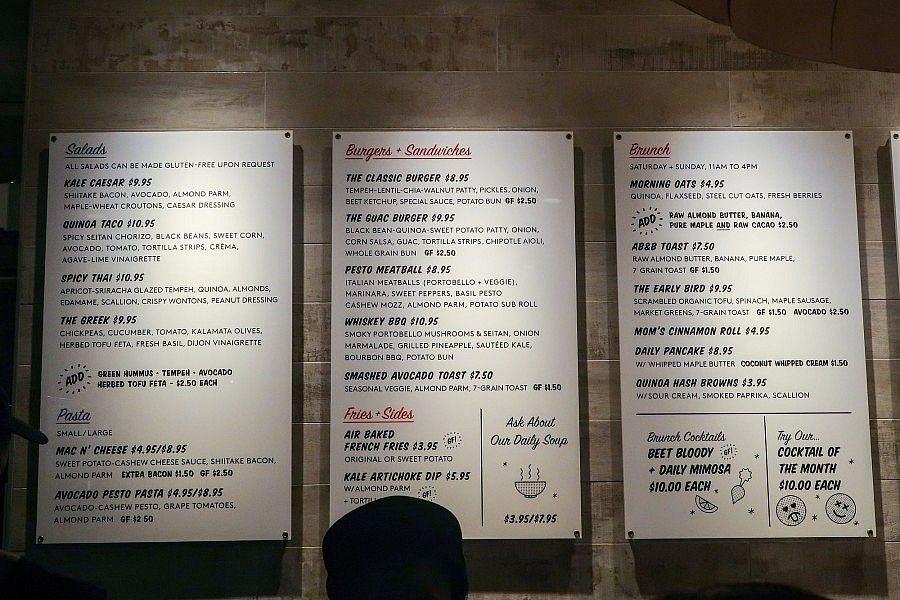 Salads
ALL SALADS CAN BE MADE GLUTEN-FREE UPON REQUEST
KALE CAESAR $9.95
SHIITAKE BACON, AVOCADO, ALMOND PARM,
MAPLE-WHEAT CROUTONS, CAESAR DRESSING
QUINOA TACO $10.95
SPICY SEITAN CHORIZO, BLACK BEANS, SWEET CORN,
AVOCADO, TOMATO, TORTILLA STRIPS, CREMA,
AGAVE-LIME VINAIGRETTE
SPICY THAI $10.95
APRICOT-SRIRACHA GLAZED TEMPEH, QUINOA, ALMONDS,
EDAMAME, SCALLION, CRISPY WONTONS, PEANUT DRESSING
THE GREEK $9.95
CHICKPEAS, CUCUMBER, TOMATO, KALAMATA OLIVES,
HERBED TOFU FETA, FRESH BASIL, DIJON VINAIGRETTE
ADD GREEN HUMMUS • TEMPEH • AVOCADO
HERBED TOFU FETA - $2.50 EACH
Pasta
SMALL/LARGE
MAC N' CHEESE $4.95/$8.95
SWEET POTATO-CASHEW CHEESE SAUCE, SHIITAKE BACON,
ALMOND PARM EXTRA BACON $1.50 GF $2.50
AVOCADO PESTO PASTA $4.95/$8.95
AVOCADO-CASHEW PESTO, GRAPE TOMATOES,
ALMOND PARM GF $2.50
Burgers + Sandwiches
THE CLASSIC BURGER $8.95
TEMPEH-LENTIL-CHIA-WALNUT PATTY, PICKLES, ONION,
BEET KETCHUP, SPECIAL SAUCE, POTATO BUN GF $2.50
THE GUAC BURGER $9.95
BLACK BEAN-QUINOA-SWEET POTATO PATTY, ONION,
CORN SALSA, GUAC, TORTILLA STRIPS, CHIPOTLE AIOLI,
WHOLE GRAIN BUN GF $2.50
PESTO MEATBALL $8.95
ITALIAN MEATBALLS (PORTOBELLO + VEGGIE),
MARINARA, SWEET PEPPERS, BASIL PESTO
CASHEW MOZZ, ALMOND PARM, POTATO SUB ROLL
WHISKEY BBQ $10.95
SMOKY PORTOBELLO MUSHROOMS & SEITAN, ONION
MARMALADE, GRILLED PINEAPPLE, SAUTÉED KALE,
BOURBON BBQ, POTATO BUN
SMASHED AVOCADO TOAST $7.50
SEASONAL VEGGIE, ALMOND PARM, 7-GRAIN TOAST GF $1.50
Fries + Sides
AIR BAKED
FRENCH FRIES $3.95 GF!
ORIGINAL OR SWEET POTATO
KALE ARTICHOKE DIP $5.95
W/ALMOND PARM GF!
Ask About
Our Daily Soup
$3.95/$7.95
Brunch
SATURDAY + SUNDAY, 11AM TO 4PM
MORNING OATS $4.95
QUINOA, FLAXSEED, STEEL CUT OATS, FRESH BERRIES
ADD RAW ALMOND BUTTER, BANANA,
PURE MAPLE AND RAW CACAO $2.50
AB&B TOAST $7.50
RAW ALMOND BUTTER, BANANA, PURE MAPLE,
7 GRAIN TOAST GF $1.50
THE EARLY BIRD $9.95
SCRAMBLED ORGANIC TOFU, SPINACH, MAPLE SAUSAGE,
MARKET GREENS, 7-GRAIN TOAST GF $1.50 AVOCADO $2.50
MOM'S CINNAMON ROLL $4.95
DAILY PANCAKE $8.95
W/ WHIPPED MAPLE BUTTER COCONUT WHIPPED CREAM $1.50
QUINOA HASH BROWNS $3.95
W/SOUR CREAM, SMOKED PAPRIKA, SCALLION
Brunch Cocktails
BEET BLOODY GF!
+ DAILY MIMOSA
$10.00 EACH
Try Our...
COCKTAIL OF
THE MONTH
$10.00 EACH